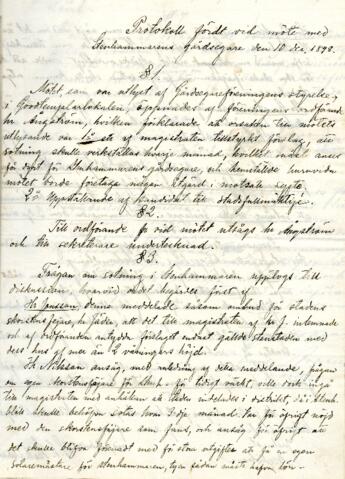 Protokoll fördt vid möte med
Stenhammarens Gårdsegare den 10 dec. 1898.
§ 1.
Mötet, som var utlyst af Gårdsegareföreningens styrelse
i Goodtemplarlokalen, öppnades af föreningens ordförande
hr Ångström, hvilken förklarade att orsaken till mötets
utlysande var 1o ett af magistraten tillstyrkt förslag, att
sotning skulle verkställas hvarje månad, hvilket ansés
för Stenhammarens gårdsegare, och hemstälde huruvida
mötet borde företaga någon åtgärd.
2o Uppställande af kandidat till stadsfullmäktige.
§ 2.
Till ordförande för vid mötet utsågs hr Ångström
och till sekreterare undertecknad.
§ 3.
Frågan om sotning i Stenhammaren upptogs till
diskussion, hvarvid ordet begärdes först af
Hr Jonsson, denne meddelade såsom ombud för stadens
skorstensfejare, hr att det till magistraten af hr J. inlemnade
och af ordföranden antydda förslaget endast gällde stenstaden med
dess hus af mer än 2 våningars höjd.
Hr Nilsson ansåg, med anledning af detta meddelande, frågan
om egen skorstensfejare för för tidigt väckt, ville dock ingå
till magistraten med anhållan att staden indelades i distrikt, då
skulle behöfva sotas hvar 3:dje månad, var för öfrigt nöjd
med den skorstensfejare som fans, och ansåg för öfrigt att
det skulle blifva förenadt med för stora utgifter att få en egen
sotaremästare för Stenhammaren, ty en sådan måste hafva lön.